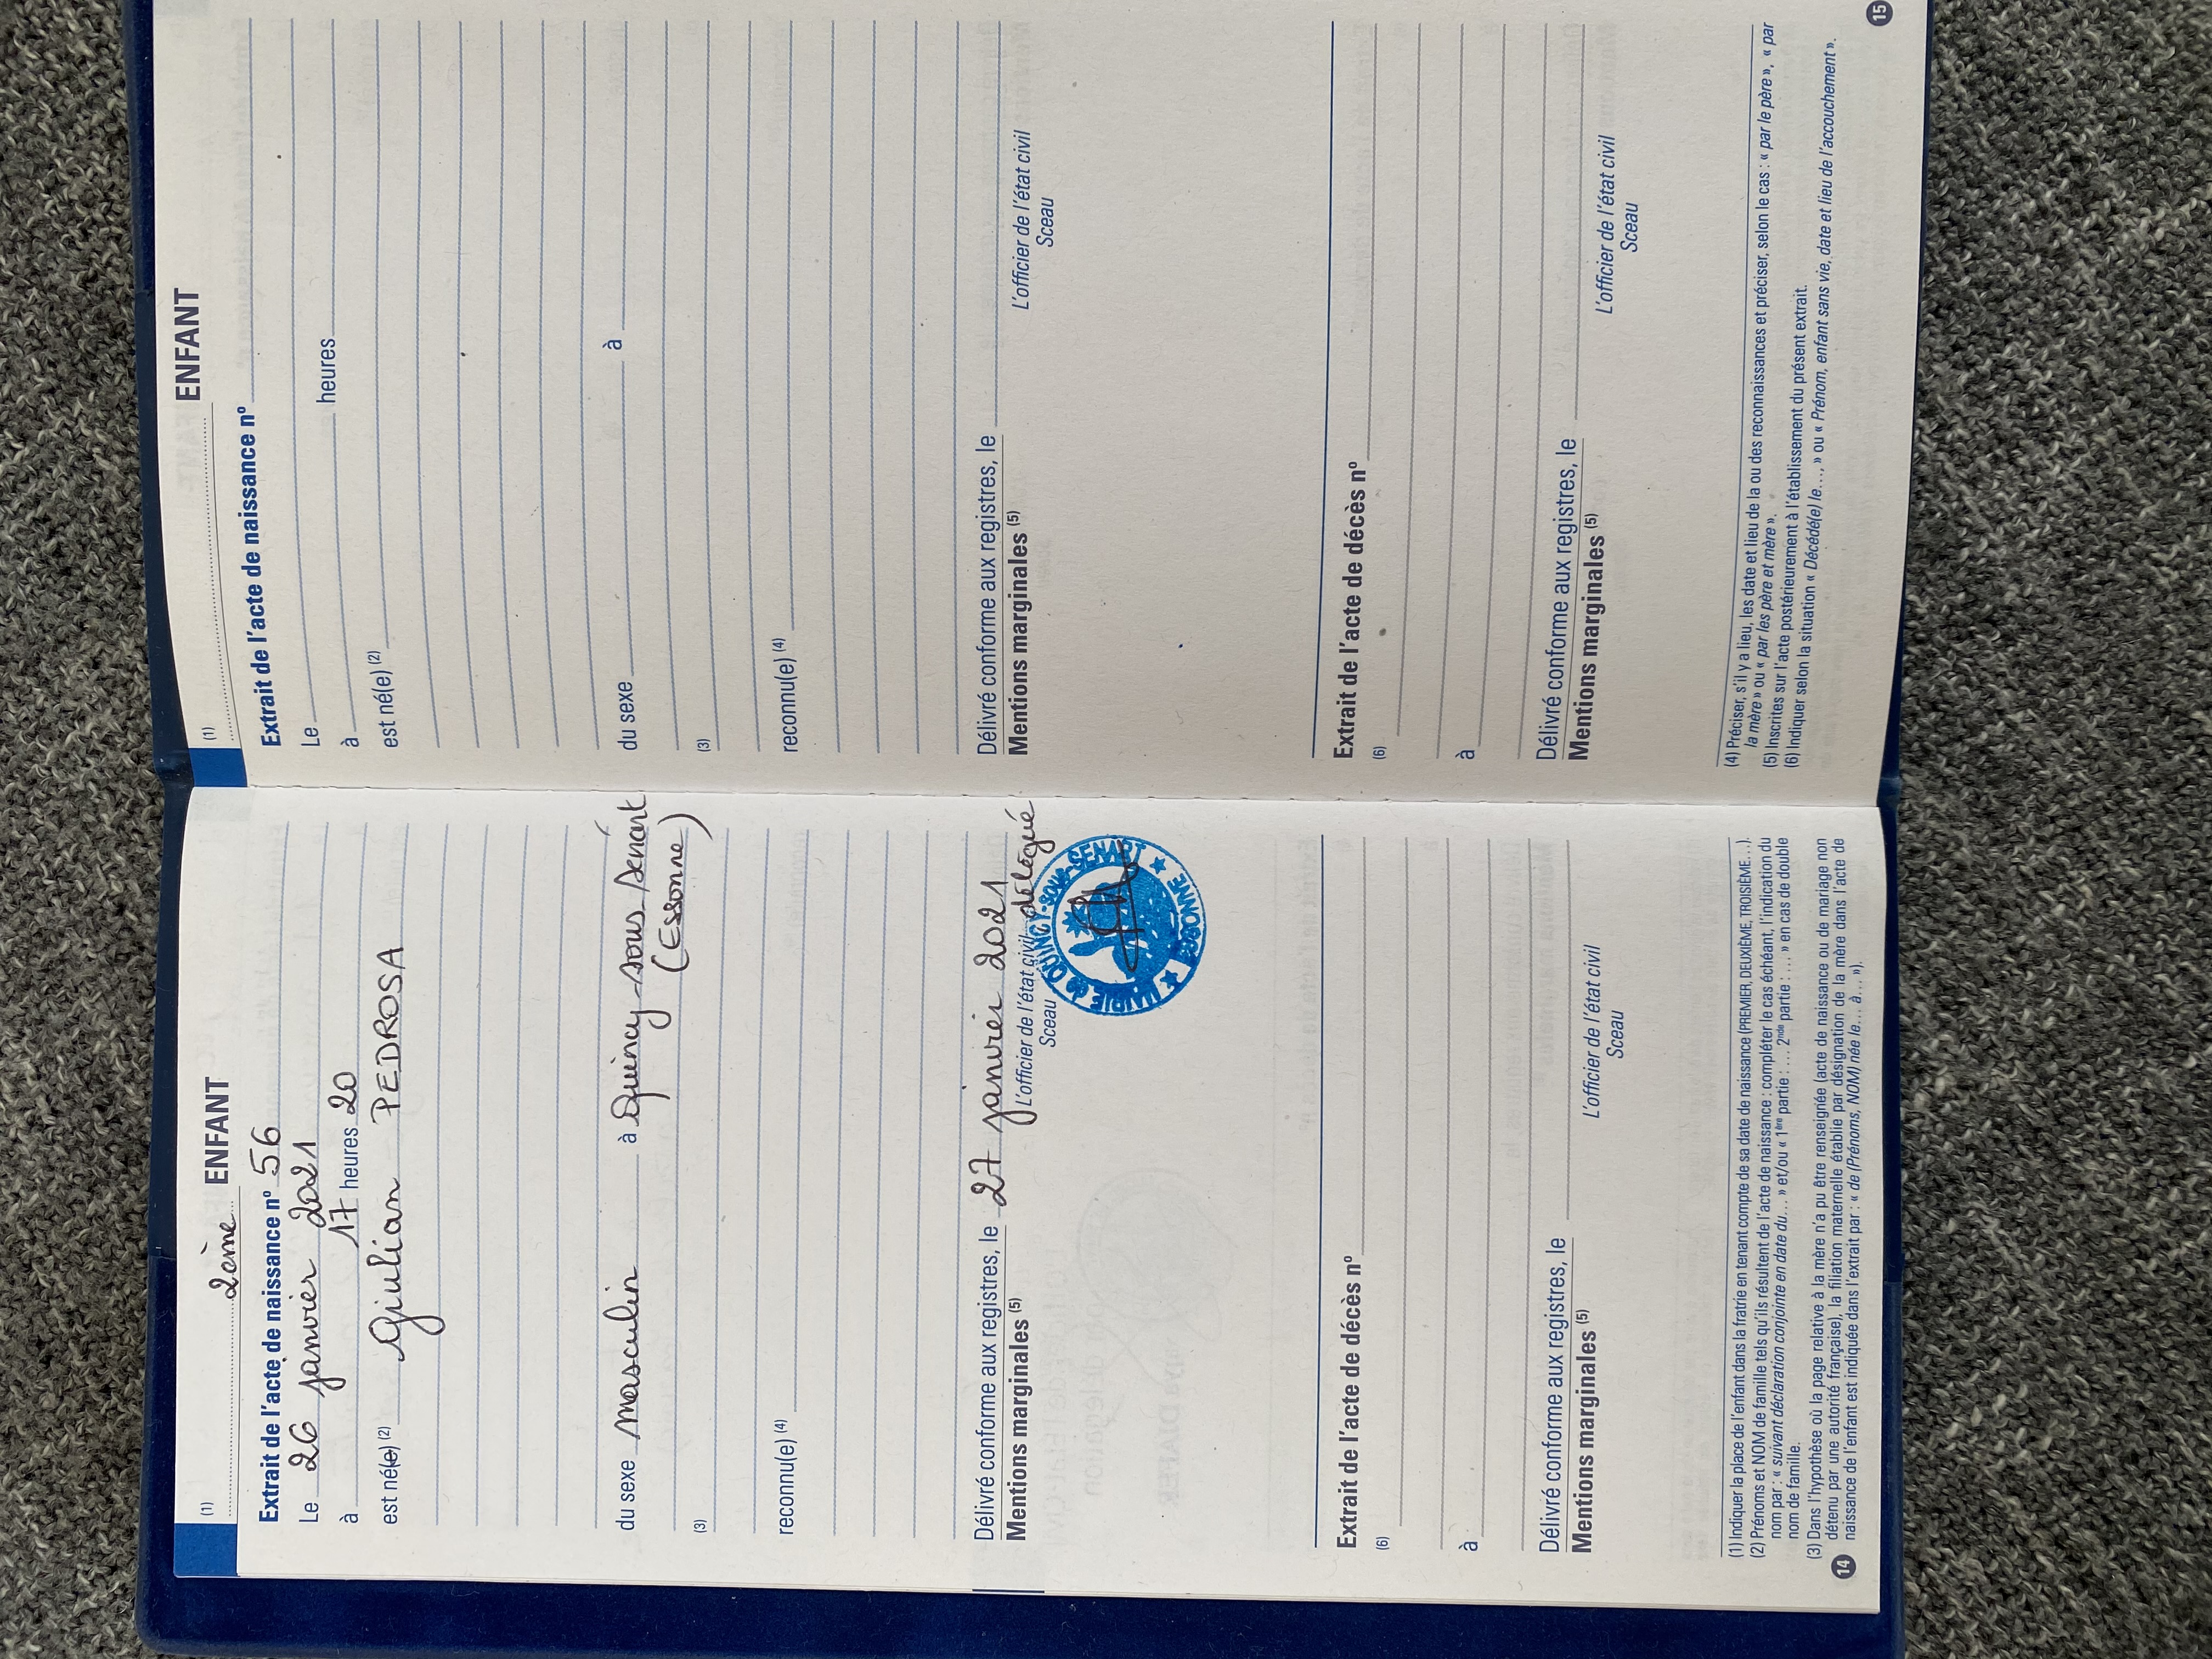 (1) 2ème ENFANT
Extrait de l'acte de naissance nº 56
Le 26 janvier 2021
à 17 heures 20
est né(e) (2) Giulian PEDROSA
du sexe masculin à Quincy-sous-Sénart
(3) (Essonne)
reconnu(e) (4)
Délivré conforme aux registres, le 27 janvier 2021
Mentions marginales (5) L'officier de l'état civil délégué
Sceau
MAIRIE de QUINCY-SOUS-SENART
★ ESSONNE ★
Extrait de l'acte de décès nº
(6)
à
Délivré conforme aux registres, le
Mentions marginales (5) L'officier de l'état civil
Sceau
(1) Indiquer la place de l'enfant dans la fratrie en tenant compte de sa date de naissance (PREMIER, DEUXIÈME, TROISIÈME…).
(2) Prénoms et NOM de famille tels qu'ils résultent de l'acte de naissance : compléter le cas échéant, l'indication du
nom par : « suivant déclaration conjointe en date du… » et/ou « 1ère partie : … 2nde partie : … » en cas de double
nom de famille.
(3) Dans l'hypothèse où la page relative à la mère n'a pu être renseignée (acte de naissance ou de mariage non
détenu par une autorité française), la filiation maternelle établie par désignation de la mère dans l'acte de
naissance de l'enfant est indiquée dans l'extrait par : « de (Prénoms, NOM) née le… à… »).
14
(1) ENFANT
Extrait de l'acte de naissance nº
Le
à heures
est né(e) (2)
du sexe à
(3)
reconnu(e) (4)
Délivré conforme aux registres, le
Mentions marginales (5) L'officier de l'état civil
Sceau
Extrait de l'acte de décès nº
(6)
à
Délivré conforme aux registres, le
Mentions marginales (5) L'officier de l'état civil
Sceau
(4) Préciser, s'il y a lieu, les date et lieu de la ou des reconnaissances et préciser, selon le cas : « par le père », « par
la mère » ou « par les père et mère ».
(5) Inscrites sur l'acte postérieurement à l'établissement du présent extrait.
(6) Indiquer selon la situation « Décédé(e) le…, » ou « Prénom, enfant sans vie, date et lieu de l'accouchement ».
15